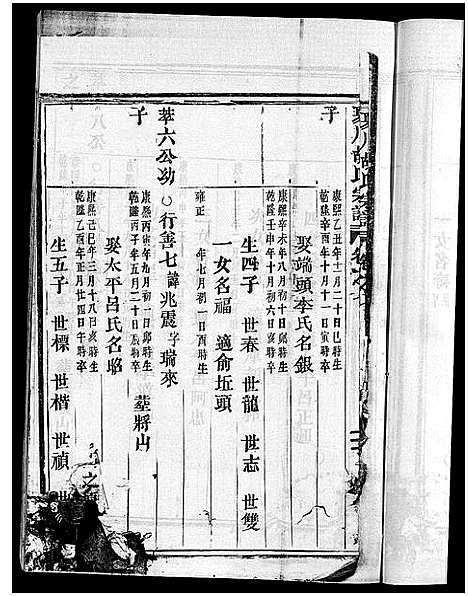 子
康熙乙丑年十二月二十日巳時生
乾隆辛酉年十月十一日寅時卒
娶端頭李氏名銀
康熙辛未年八月初十日亥時生
乾隆壬申年十月初六日亥時卒
生四子 世春 世龍 世志 世雙
一女名福 適俞坵頭
雍正 年七月初一日酉時生
莘六公幼○行善七諱兆震字瑞來
子
康熙丙寅年九月初一日卯時生
乾隆丙子年五月二十日辰時卒 塟蔣山
娶太平呂氏名
康熙己巳年三月十八日亥時生
乾隆乙酉年正月廿四日午時卒
生五子 世標 世楷 世禎 世
之